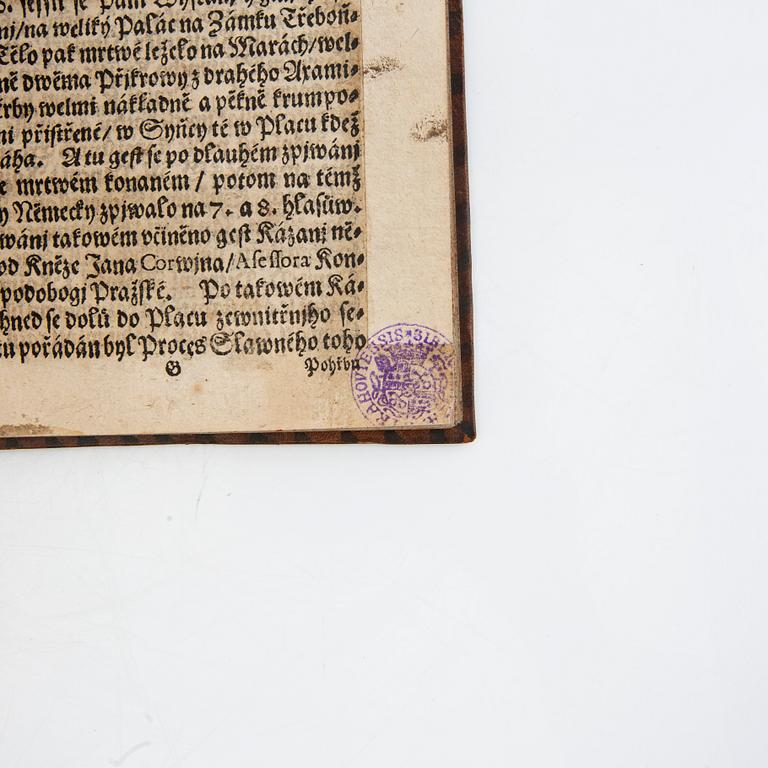 nj/na weliký Palác na Zámku Třeboň⸗
Tělo pak mrtwé leželo na Marách/wel⸗
ně dwěma Přjkrowy z drahého Axami⸗
rby welmi nákladně a pěkně krumpo⸗
ni přistřené/ w Syńcy té w Placu kdež
áha. A tu gest se po dlauhém zpjwánj
e mrtwém konaném / potom na témž
y Německy zpjwalo na 7. a 8. hlasůw.
wánj takowém včiněno gest Kázanj ně⸗
od Kněze Jana Corwjna/Assessora Kon⸗
podobogj Pražské. Po takowém Ká⸗
hned se dolů do Placu zewnitřnjho se⸗
tu pořádán byl Proces Slawného toho
G Pohřbu